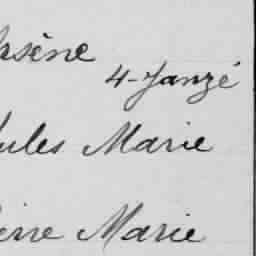 rsène
4-Janzé
ules Marie
ierre Marie